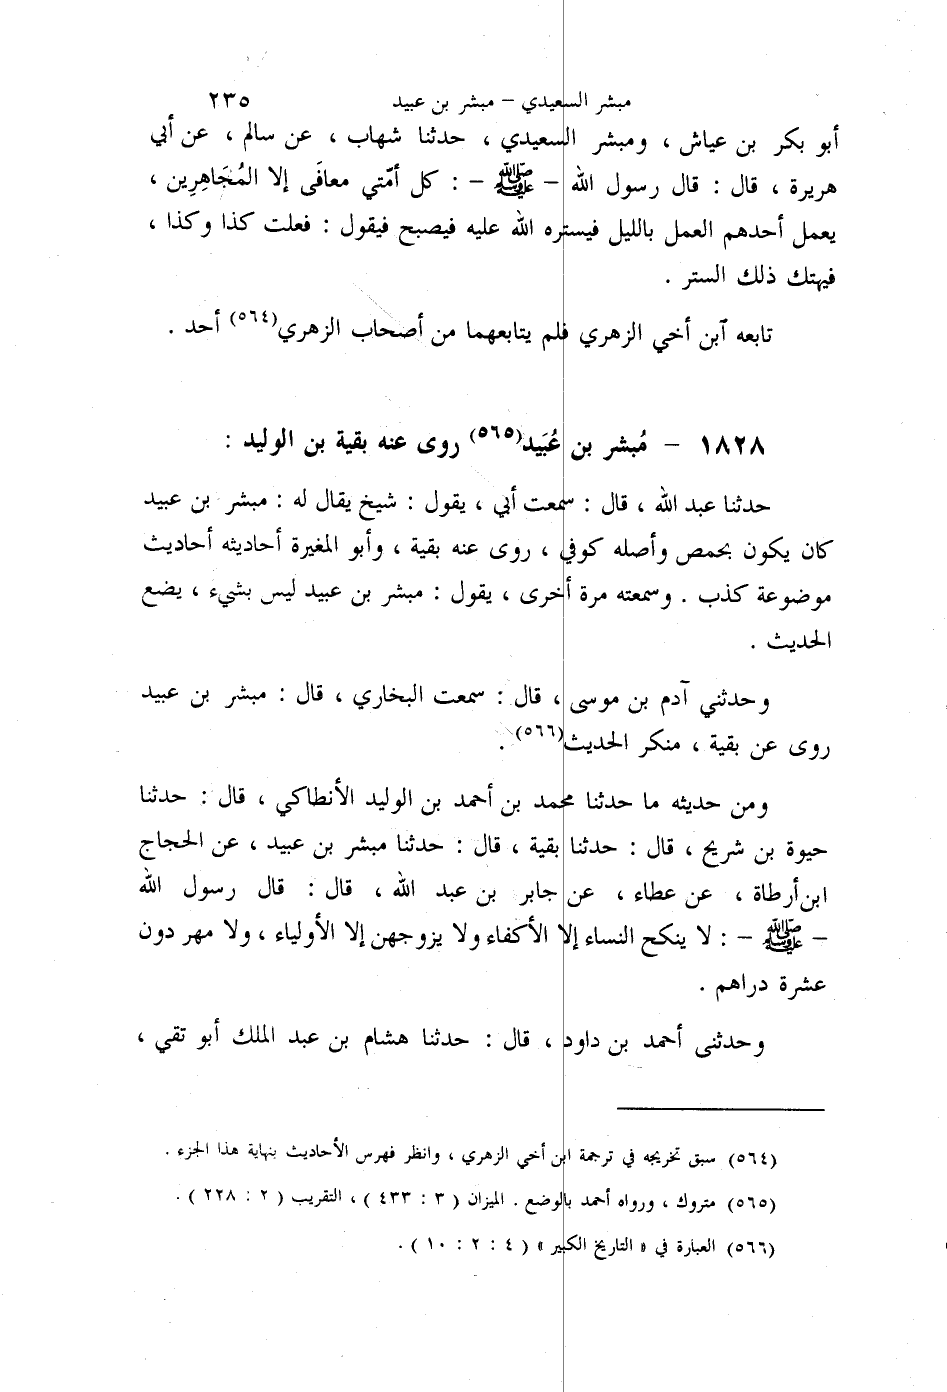 مبشر السعيدي – مبشر بن عبيد ٢٣٥
أبو بكر بن عياش ، ومبشر السعيدي ، حدثنا شهاب ، عن سالم ، عن أبي
هريرة ، قال : قال رسول الله – ﷺ – : كل أمّتي معافَى إلا المُجَاهِرِين ،
يعمل أحدهم العمل بالليل فيستره الله عليه فيصبح فيقول : فعلت كذا وكذا ،
فيهتك ذلك الستر .
تابعه ٱبن أخي الزهري فلم يتابعهما من أصحاب الزهري(٥٦٤) أحد .
١٨٢٨ – مُبشر بن عُبَيد(٥٦٥) روى عنه بقية بن الوليد :
حدثنا عبد الله ، قال : سمعت أبي ، يقول : شيخ يقال له : مبشر بن عبيد
كان يكون بحمص وأصله كوفي ، روى عنه بقية ، وأبو المغيرة أحاديثه أحاديث
موضوعة كذب . وسمعته مرة أخرى ، يقول : مبشر بن عبيد ليس بشيء ، يضع
الحديث .
وحدثني آدم بن موسى ، قال : سمعت البخاري ، قال : مبشر بن عبيد
روى عن بقية ، منكر الحديث(٥٦٦) .
ومن حديثه ما حدثنا محمد بن أحمد بن الوليد الأنطاكي ، قال : حدثنا
حيوة بن شريح ، قال : حدثنا بقية ، قال : حدثنا مبشر بن عبيد ، عن الحجاج
ابن أرطاة ، عن عطاء ، عن جابر بن عبد الله ، قال : قال رسول الله
– ﷺ – : لا ينكح النساء إلا الأكفاء ولا يزوجهن إلا الأولياء ، ولا مهر دون
عشرة دراهم .
وحدثنى أحمد بن داود ، قال : حدثنا هشام بن عبد الملك أبو تقي ،
(٥٦٤) سبق تخريجه في ترجمة ابن أخي الزهري ، وانظر فهرس الأحاديث بنهاية هذا الجزء .
(٥٦٥) متروك ، ورواه أحمد بالوضع . الميزان ( ٣ : ٤٣٣ ) ، التقريب ( ٢ : ٢٢٨ ) .
(٥٦٦) العبارة في « التاريخ الكبير » ( ٤ : ٢ : ١٠ ) .